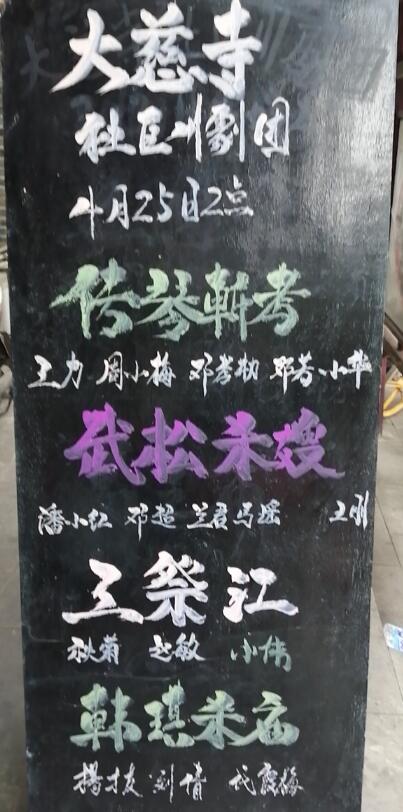 大慈寺
社区川劇团
4月25日2点
传琴斩考
王力 周小梅 邓孝勒 邓芳 小华
武松杀嫂
潘小红 邓超 兰君 马瑶 王刚
三祭江
秋菊 赵敏 小伟
韩琪杀庙
楊才友 刘倩 代霞梅